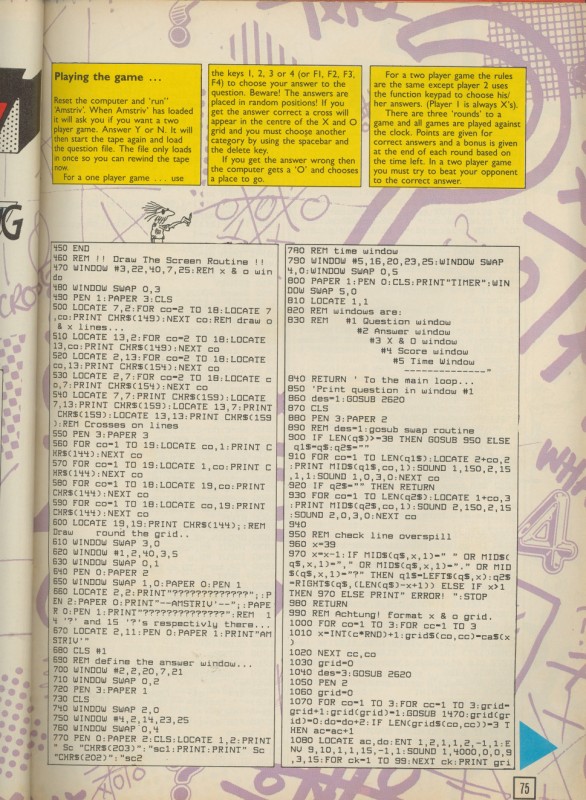 Playing the game ...
Reset the computer and 'run"
'Amstriv'. When Amstriv' has loaded
it will ask you if you want a two
player game. Answer Y or N. It will
then start the tape again and load
the question file. The file only loads
in once so you can rewind the tape
now.
For a one player game ... use
the keys 1, 2, 3 or 4 (or F1, F2, F3,
F4) to choose your answer to the
question. Beware! The answers are
placed in random positions! If you
get the answer correct a cross will
appear in the centre of the X and O
grid and you must choose another
category by using the spacebar and
the delete key.
If you get the answer wrong then
the computer gets a 'O' and chooses
a place to go.
For a two player game the rules
are the same except player 2 uses
the function keypad to choose his/
her answers. (Player 1 is always X's).
There are three 'rounds' to a
game and all games are played against
the clock. Points are given for
correct answers and a bonus is given
at the end of each round based on
the time left. In a two player game
you must try to beat your opponent
to the correct answer.
450 END
460 REM !! Draw The Screen Routine !!
470 WINDOW #3,22,40,7,25:REM x & o win
do
480 WINDOW SWAP 0,3
490 PEN 1:PAPER 3:CLS
500 LOCATE 7,2:FOR co=2 TO 18:LOCATE 7
,co:PRINT CHR$(149):NEXT co:REM draw o
& x lines...
510 LOCATE 13,2:FOR co=2 TO 18:LOCATE
13,co:PRINT CHR$(149):NEXT co
520 LOCATE 2,13:FOR co=2 TO 18:LOCATE
co,13:PRINT CHR$(154):NEXT co
530 LOCATE 2,7:FOR co=2 TO 18:LOCATE c
o,7:PRINT CHR$(154):NEXT co
540 LOCATE 7,7:PRINT CHR$(159):LOCATE
7,13:PRINT CHR$(159):LOCATE 13,7:PRINT
CHR$(159):LOCATE 13,13:PRINT CHR$(159
):REM Crosses on lines
550 PEN 3:PAPER 3
560 FOR co=1 TO 19:LOCATE co,1:PRINT C
HR$(144):NEXT co
570 FOR co=1 TO 19:LOCATE 1,co:PRINT C
HR$(144):NEXT co
580 FOR co=1 TO 18:LOCATE 19,co:PRINT
CHR$(144):NEXT co
590 FOR co=1 TO 18:LOCATE co,19:PRINT
CHR$(144):NEXT co
600 LOCATE 19,19:PRINT CHR$(144);:REM
Draw round the grid..
610 WINDOW SWAP 3,0
620 WINDOW #1,2,40,3,5
630 WINDOW SWAP 0,1
640 PEN 0:PAPER 2
650 WINDOW SWAP 1,0:PAPER 0:PEN 1
660 LOCATE 2,2:PRINT"??????????????";:P
EN 2:PAPER 0:PRINT"--AMSTRIV'--";:PAPE
R 0:PEN 1:PRINT"???????????????":REM 1
4 '?' and 15 '?'s respectivly there...
670 LOCATE 2,11:PEN 0:PAPER 1:PRINT"AM
STRIV'"
680 CLS #1
690 REM define the answer window...
700 WINDOW #2,2,20,7,21
710 WINDOW SWAP 0,2
720 PEN 3:PAPER 1
730 CLS
740 WINDOW SWAP 2,0
750 WINDOW #4,2,14,23,25
760 WINDOW SWAP 0,4
770 PEN 0:PAPER 2:CLS:LOCATE 1,2:PRINT
" Sc "CHR$(203)":"sc1:PRINT:PRINT" Sc
"CHR$(202)":"sc2
780 REM time window
790 WINDOW #5,16,20,23,25:WINDOW SWAP
4,0:WINDOW SWAP 0,5
800 PAPER 1:PEN 0:CLS:PRINT"TIMER":WIN
DOW SWAP 5,0
810 LOCATE 1,1
820 REM windows are:
830 REM #1 Question window
#2 Answer window
#3 X & O window
#4 Score window
#5 Time Window
--------------"
840 RETURN ' To the main loop...
850 'Print question in window #1
860 des=1:GOSUB 2620
870 CLS
880 PEN 3:PAPER 2
890 REM des=1:gosub swap routine
900 IF LEN(q$)>=38 THEN GOSUB 950 ELSE
q1$=q$:q2$=""
910 FOR co=1 TO LEN(q1$):LOCATE 2+co,2
:PRINT MID$(q1$,co,1):SOUND 1,150,2,15
,1,1:SOUND 1,0,3,0:NEXT co
920 IF q2$="" THEN RETURN
930 FOR co=1 TO LEN(q2$):LOCATE 1+co,3
:PRINT MID$(q2$,co,1):SOUND 2,150,2,15
:SOUND 2,0,3,0:NEXT co
940
950 REM check line overspill
960 x=39
970 x=x-1:IF MID$(q$,x,1)=" " OR MID$(
q$,x,1)="," OR MID$(q$,x,1)="." OR MID
$(q$,x,1)="?" THEN q1$=LEFT$(q$,x):q2$
=RIGHT$(q$,(LEN(q$)-x+1)) ELSE IF x>1
THEN 970 ELSE PRINT" ERROR! ":STOP
980 RETURN
990 REM Achtung! format x & o grid.
1000 FOR co=1 TO 3:FOR cc=1 TO 3
1010 x=INT(c*RND)+1:grid$(co,cc)=ca$(x
)
1020 NEXT cc,co
1030 grid=0
1040 des=3:GOSUB 2620
1050 PEN 2
1060 grid=0
1070 FOR co=1 TO 3:FOR cc=1 TO 3:grid=
grid+1:grid(grid)=1:GOSUB 1470:grid(gr
id)=0:do=do+2:IF LEN(grid$(co,cc))=3 T
HEN ac=ac+1
1080 LOCATE ac,do:ENT 1,2,1,1,2,-1,1:E
NV 9,10,1,1,15,-1,1:SOUND 1,4000,0,0,9
,3,15:FOR ck=1 TO 99:NEXT ck:PRINT gri
75